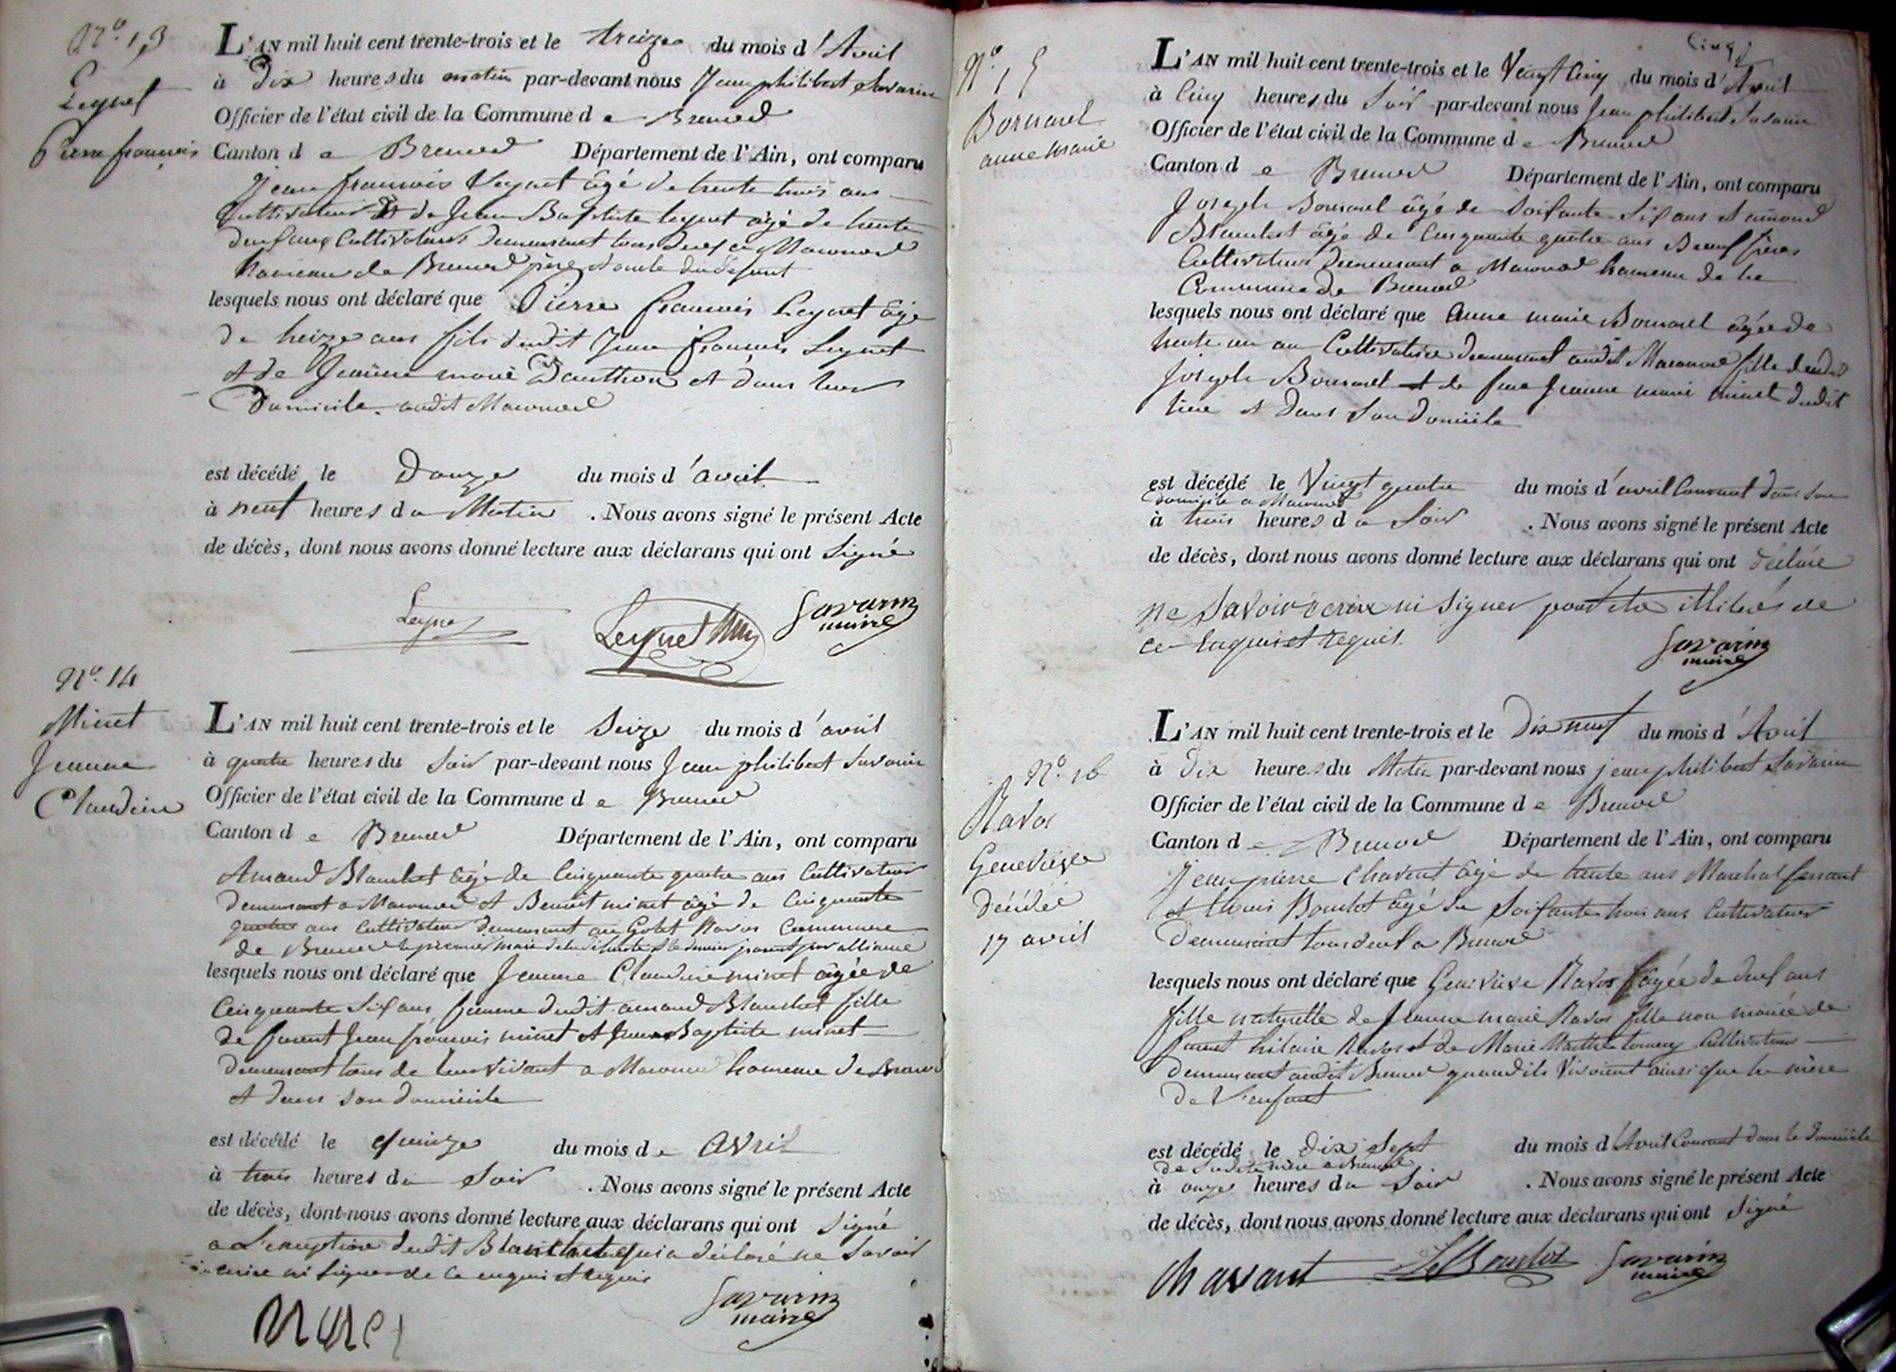 N.º 13
Leynet
Pierre françois
L'AN mil huit cent trente-trois et le treize du mois d'Avril
à Dix heures du matin par-devant nous Jean philibert Savarin
Officier de l'état civil de la Commune de Brenod
Canton de Brenod Département de l'Ain, ont comparu
Jean françois Leynet âgé de trente trois ans
Cultivateur et de Jean Baptiste leynet âgé de trente
deux ans Cultivateurs demeurant tous deux a Macconod
hameau de Brenod père et oncle du défunt
lesquels nous ont déclaré que Pierre françois Leynet âgé
de treize ans fils dudit Jean françois Leynet
et de Jeanne marie et dans leur
Domicile audit Macconod
est décédé le Douze du mois d'avril
à neuf heures du Matin . Nous avons signé le présent Acte
de décès, dont nous avons donné lecture aux déclarans qui ont signé
Leynet
Leynet
Savarin
maire
N.º 14
Minet
Jeanne
Claudine
L'AN mil huit cent trente-trois et le Seize du mois d'avril
à quatre heures du soir par-devant nous Jean philibert Savarin
Officier de l'état civil de la Commune de Brenod
Canton de Brenod Département de l'Ain, ont comparu
Amand Blanchet âgé de Cinquante quatre ans Cultivateur
demeurant a Macconod et Benoit minet âgé de Cinquante
quatre ans Cultivateur demeurant au Golet Ravos Commune
de Brenod le premier mari de la défunte et le dernier parent par alliance
lesquels nous ont déclaré que Jeanne Claudine minet âgée de
Cinquante six ans femme dudit amand Blanchet fille
de furent Jean françois minet et Jeanne Baptiste minet
demeurant tous de leur vivant a Macconod hameau de Brenod
et dans son domicile
est décédé le quinze du mois de avril
à trois heures du Soir . Nous avons signé le présent Acte
de décès, dont nous avons donné lecture aux déclarans qui ont signé
a L'exception dudit Blanchet qui a déclaré ne savoir
écrire ni signer de ce enquis et requis
minet
Savarin
maire
Cinq
N.º 15
Bornarel
anne marie
L'AN mil huit cent trente-trois et le Vingt Cinq du mois d'Avril
à Cinq heures du Soir par-devant nous Jean philibert Savarin
Officier de l'état civil de la Commune de Brenod
Canton de Brenod Département de l'Ain, ont comparu
Joseph Bornarel âgé de Soixante Six ans et amand
Blanchet âgé de Cinquante quatre ans Beaux frères
Cultivateurs Demeurant a Macconod hameau de la
Commune de Brenod
lesquels nous ont déclaré que Anne marie Bornarel âgée de
trente un an Cultivatrice demeurant audit Macconod fille dudit
Joseph Bornarel et de feue Jeanne marie minet dudit
lieu et dans son domicile
est décédé le Vingt quatre du mois d'avril Courant dans son
domicile a Macconod
à trois heures du Soir . Nous avons signé le présent Acte
de décès, dont nous avons donné lecture aux déclarans qui ont déclaré
ne savoir écrire ni signer pour être illitérés de
ce enquis et requis
Savarin
maire
N.º 16
Ravos
Geneviève
décédée
17 avril
L'AN mil huit cent trente-trois et le Dix neuf du mois d'Avril
à dix heures du Matin par-devant nous jean philibert Savarin
Officier de l'état civil de la Commune de Brenod
Canton de Brenod Département de l'Ain, ont comparu
Jean pierre Chavent âgé de trente ans Maréchal ferrant
et Louis Bourlot âgé de Soixante trois ans Cultivateur
demeurant tous deux a Brenod
lesquels nous ont déclaré que Genevieve Ravos âgée de deux ans
fille naturelle de Jeanne marie Ravos fille non mariée de
furent hilaire Ravos et de Marie Marthe Cultivateurs
demeurant audit Brenod quand ils Vivoient ainsi que la mère
de L'enfant
est décédé le dix Sept du mois d'Avril Courant dans le domicile
de sa dite mère a Brenod
à onze heures du Soir . Nous avons signé le présent Acte
de décès, dont nous avons donné lecture aux déclarans qui ont signé
Chavant
Ls Bourlot
Savarin
maire